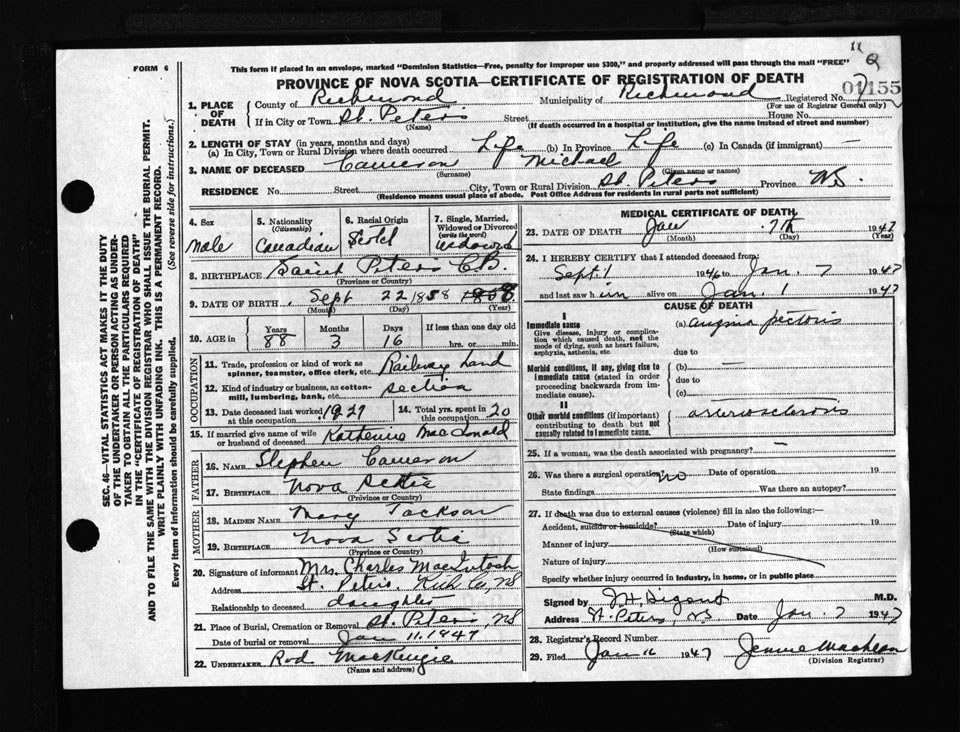 FORM 6
This form if placed in an envelope, marked "Dominion Statistics—Free, penalty for improper use $300," and properly addressed will pass through the mail "FREE"
PROVINCE OF NOVA SCOTIA—CERTIFICATE OF REGISTRATION OF DEATH
01155
1. PLACE OF DEATH
County of Richmond Municipality of Richmond Registered No. 7
(For use of Registrar General only)
If in City or Town St. Peters Street House No.
(Name) (If death occurred in a hospital or institution, give the name instead of street and number)
2. LENGTH OF STAY (in years, months and days)
(a) In City, Town or Rural Division where death occurred Life (b) In Province Life (c) In Canada (if immigrant) —
3. NAME OF DECEASED Cameron Michael
(Surname) (Given name or names)
RESIDENCE No. Street City, Town or Rural Division St. Peters Province N.S.
(Residence means usual place of abode. Post Office Address for residents in rural parts not sufficient)
4. Sex Male
5. Nationality (Citizenship) Canadian
6. Racial Origin Scotch
7. Single, Married, Widowed or Divorced (write the word) widowed
8. BIRTHPLACE Saint Peters C.B.
(Province or Country)
9. DATE OF BIRTH Sept 22 1858
(Month) (Day) (Year)
10. AGE in Years 88 Months 3 Days 16 If less than one day old hrs. or min.
OCCUPATION
11. Trade, profession or kind of work as spinner, teamster, office clerk, etc. Railway hand
12. Kind of industry or business, as cotton-mill, lumbering, bank, etc. section
13. Date deceased last worked at this occupation 1927
14. Total yrs. spent in this occupation 20
15. If married give name of wife or husband of deceased Katherine MacDonald
FATHER
16. NAME Stephen Cameron
17. BIRTHPLACE Nova Scotia
(Province or Country)
MOTHER
18. MAIDEN NAME Mary Jackson
19. BIRTHPLACE Nova Scotia
(Province or Country)
20. Signature of informant Mrs. Charles MacIntosh
Address St. Peters, Rich. Co, N.S
Relationship to deceased daughter
21. Place of Burial, Cremation or Removal St. Peters, N.S
Date of burial or removal Jan 11, 1947
22. UNDERTAKER Rod MacKenzie
(Name and address)
MEDICAL CERTIFICATE OF DEATH
23. DATE OF DEATH Jan 7th 1947
(Month) (Day) (Year)
24. I HEREBY CERTIFY that I attended deceased from:
Sept. 1 1946 to Jan. 7 1947
and last saw him alive on Jan. 1 1947
CAUSE OF DEATH
I
Immediate cause (a) angina pectoris
Give disease, injury or complication which caused death, not the mode of dying, such as heart failure, asphyxia, asthenia, etc.
due to
Morbid conditions, if any, giving rise to immediate cause (stated in order proceeding backwards from immediate cause).
(b) —
due to
(c)
II
Other morbid conditions (if important) contributing to death but not causally related to immediate cause. arteriosclerosis
25. If a woman, was the death associated with pregnancy? —
26. Was there a surgical operation? no Date of operation 19
State findings Was there an autopsy?
27. If death was due to external causes (violence) fill in also the following:—
Accident, suicide or homicide? Date of injury 19
(State which)
Manner of injury
(How sustained)
Nature of injury
Specify whether injury occurred in industry, in home, or in public place
Signed by M.D.
Address St. Peters, N.S Date Jan. 7 1947
28. Registrar's Record Number
29. Filed Jan 11 1947 Jennie MacLean
(Division Registrar)
SEC. 46—VITAL STATISTICS ACT MAKES IT THE DUTY
OF THE UNDERTAKER OR PERSON ACTING AS UNDER-
TAKER TO OBTAIN ALL THE PARTICULARS REQUIRED
IN THE "CERTIFICATE OF REGISTRATION OF DEATH"
AND TO FILE THE SAME WITH THE DIVISION REGISTRAR WHO SHALL ISSUE THE BURIAL PERMIT.
WRITE PLAINLY WITH UNFADING INK. THIS IS A PERMANENT RECORD.
Every item of information should be carefully supplied. (See reverse side for instructions.)